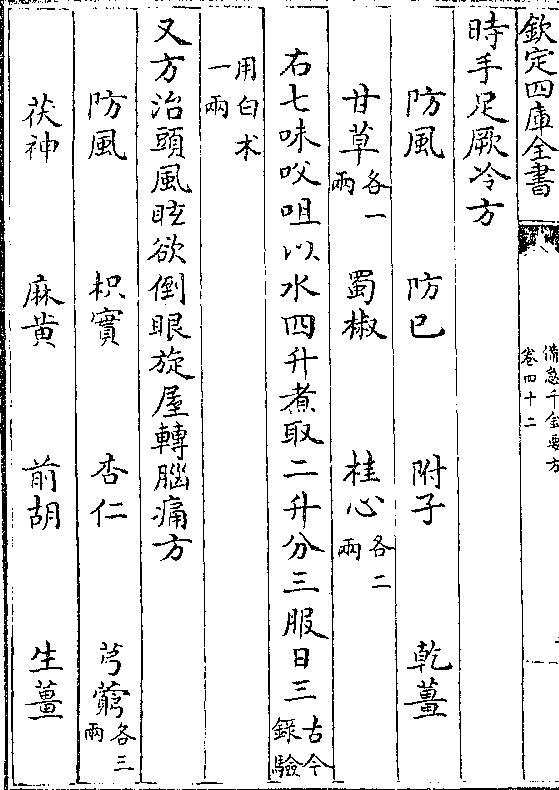 欽定四庫全書
備急千金要方
卷四十二
時手足厥冷方
防風　防已　附子　乾薑
甘草各一兩　蜀椒　桂心各二兩
右七味㕮咀以水四升煮取二升分三服日三古今錄驗
用白术一兩
又方治頭風眩欲倒眼旋屋轉腦痛方
防風　枳實　杏仁　芎藭各三兩
茯神　麻黄　前胡　生薑